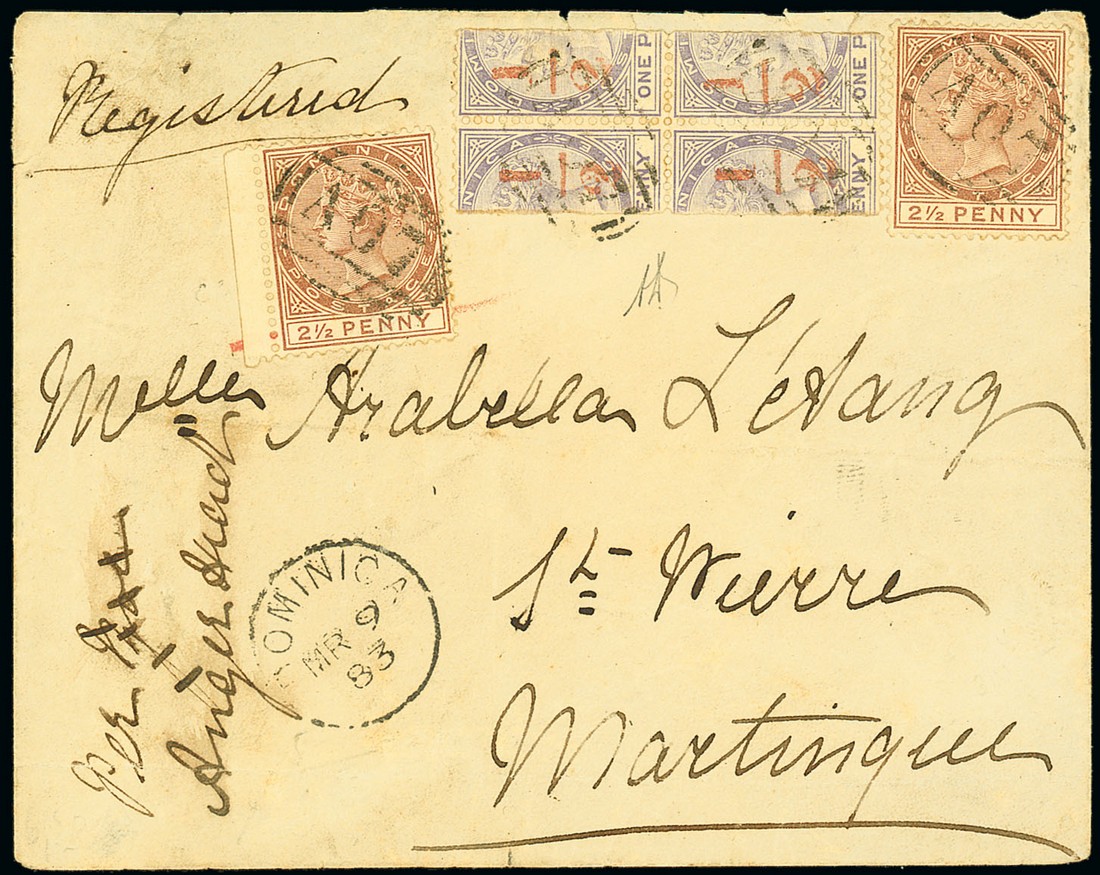 Registered
1/2 1/2
ONE P ONE P
1/2 1/2
DOMINICA POSTAGE
2½ PENNY
DOMINICA POSTAGE
2½ PENNY
A07
Melle Arabella L'étang
St Pierre
Martinique
Per
Anger Head
DOMINICA
MR 9
83